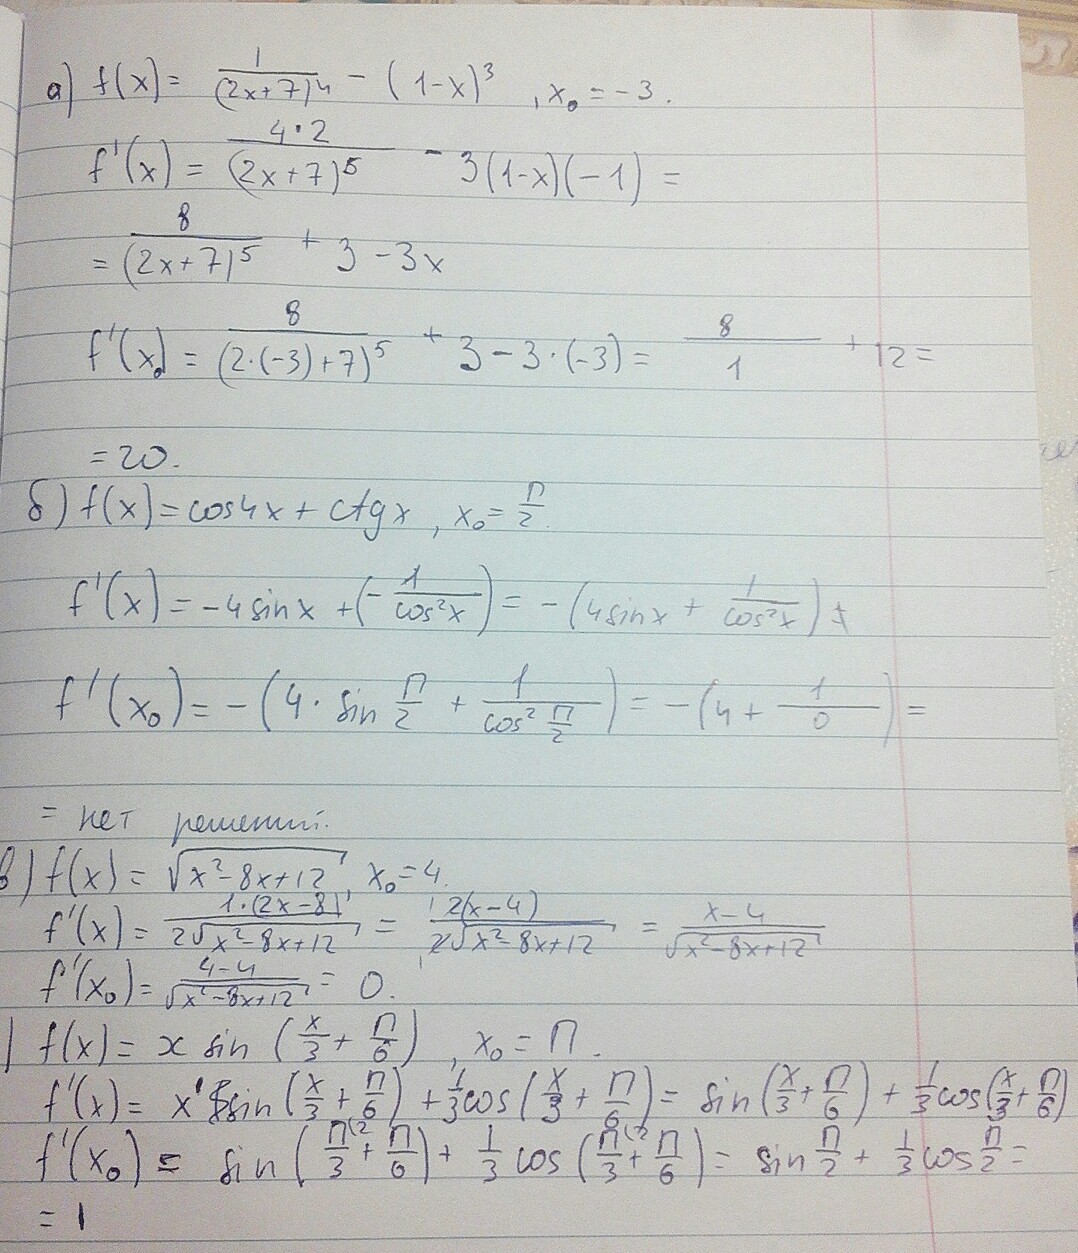 а) f(x) = 1/(2x+7)^4 - (1-x)^3 , x₀ = -3.
f'(x) = 4·2/(2x+7)^5 - 3(1-x)(-1) =
= 8/(2x+7)^5 + 3 - 3x
f'(x₀) = 8/(2·(-3)+7)^5 + 3 - 3·(-3) = 8/1 + 12 =
= 20.
б) f(x) = cos4x + ctgx , x₀ = П/2.
f'(x) = -4sinx + (-1/cos²x) = -(4sinx + 1/cos²x) ±
f'(x₀) = -(4·sin П/2 + 1/cos² П/2) = -(4 + 1/0) =
= нет решений.
в) f(x) = √(x²-8x+12) , x₀ = 4.
f'(x) = 1·(2x-8)/2√(x²-8x+12) = 2(x-4)/2√(x²-8x+12) = x-4/√(x²-8x+12)
f'(x₀) = 4-4/√(x²-8x+12) = 0.
) f(x) = x sin (x/3 + П/6) , x₀ = П.
f'(x) = x' sin (x/3 + П/6) + 1/3 cos (x/3 + П/6) = sin (x/3 + П/6) + 1/3 cos (x/3 + П/6)
f'(x₀) = sin (П(2/3 + П/6) + 1/3 cos (П(2/3 + П/6) = sin П/2 + 1/3 cos П/2 =
= 1